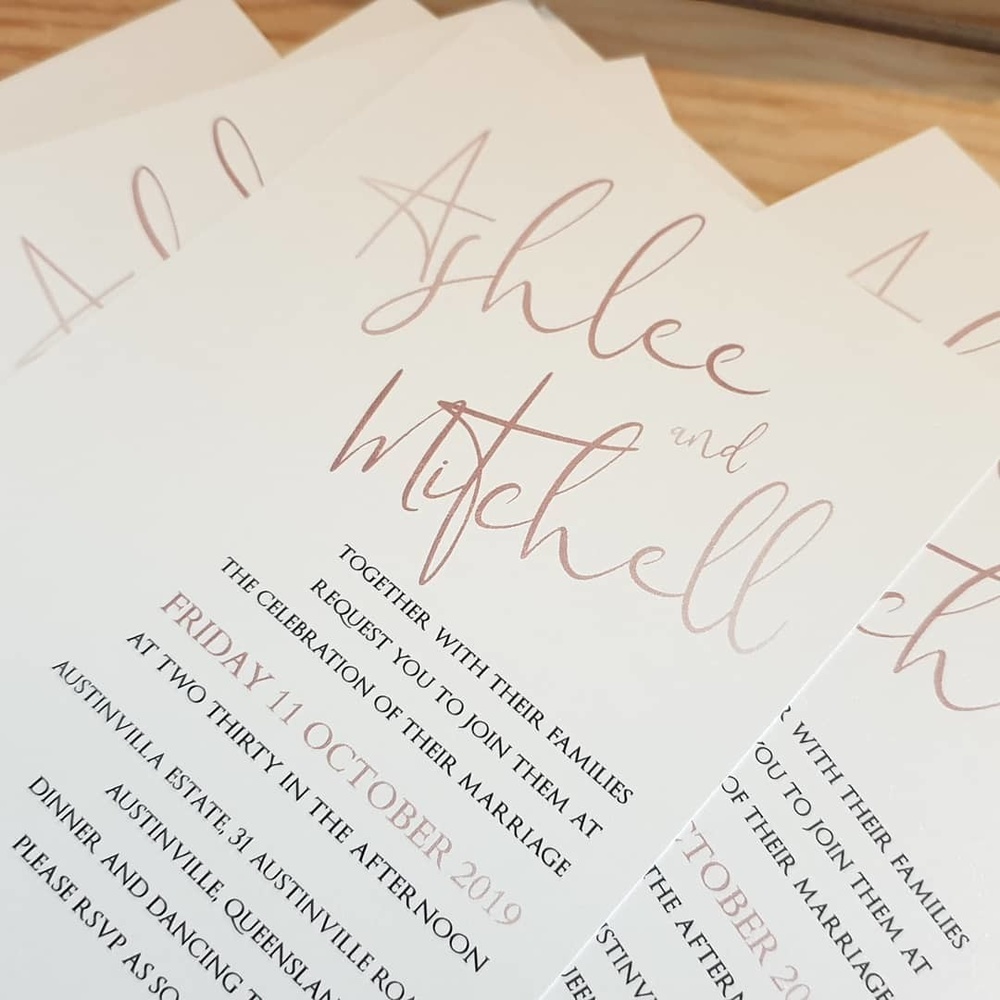 Ashlee
and
Mitchell
TOGETHER WITH THEIR FAMILIES
REQUEST YOU TO JOIN THEM AT
THE CELEBRATION OF THEIR MARRIAGE
FRIDAY 11 OCTOBER 2019
AT TWO THIRTY IN THE AFTERNOON
AUSTINVILLA ESTATE, 31 AUSTINVILLE
AUSTINVILLE,
DINNER AND DANCING
PLEASE RSVP AS
WITH THEIR FAMILIES
TO JOIN THEM AT
OF THEIR MARRIAGE